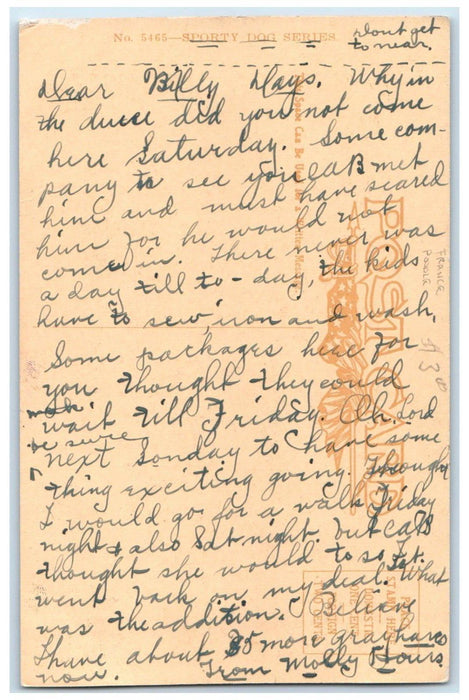 No. 5465—SPORTY DOG SERIES
dont get
to near.
Dear Billy Days. Why in
the duce did you not come
here Saturday. Some com-
pany to see you met
him and must have scared
him for he would not
come in. There never was
a day till to-day, the kids
have to sew, iron and wash,
Some packages here for
you thought they could
wait till Friday. Oh, Lord
be sure
next Sonday to have some
thing exciting going. Thought
I would go for a walk Friday
night & also Sat night. but
thought she would to so I
went back on my deal. What
was the addition. I Believe
I have about 35 more gray hairs
now. From Molly Hours
POST CARD
FRANCE
POODLE
3 00